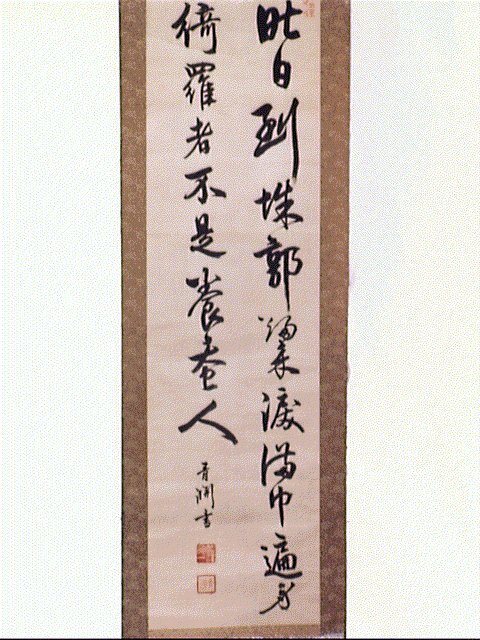 昨日到城郭歸來淚滿巾遍身
綺羅者不是養蚕人
書